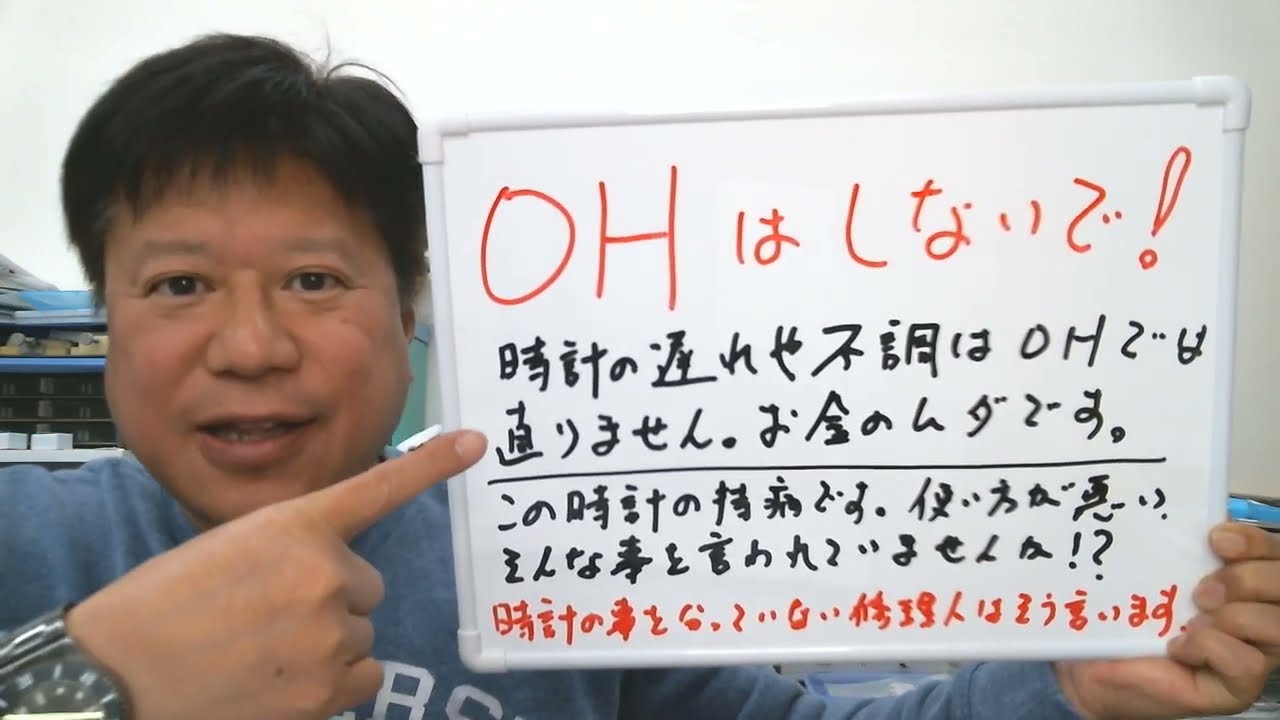 OHはしないで!
時計の遅れや不調はOHでは
直りません。お金のムダです。
この時計の持病です。使い方が悪い、
そんな事を言われていませんか!?
時計の事を分っていない修理人はそう言います。